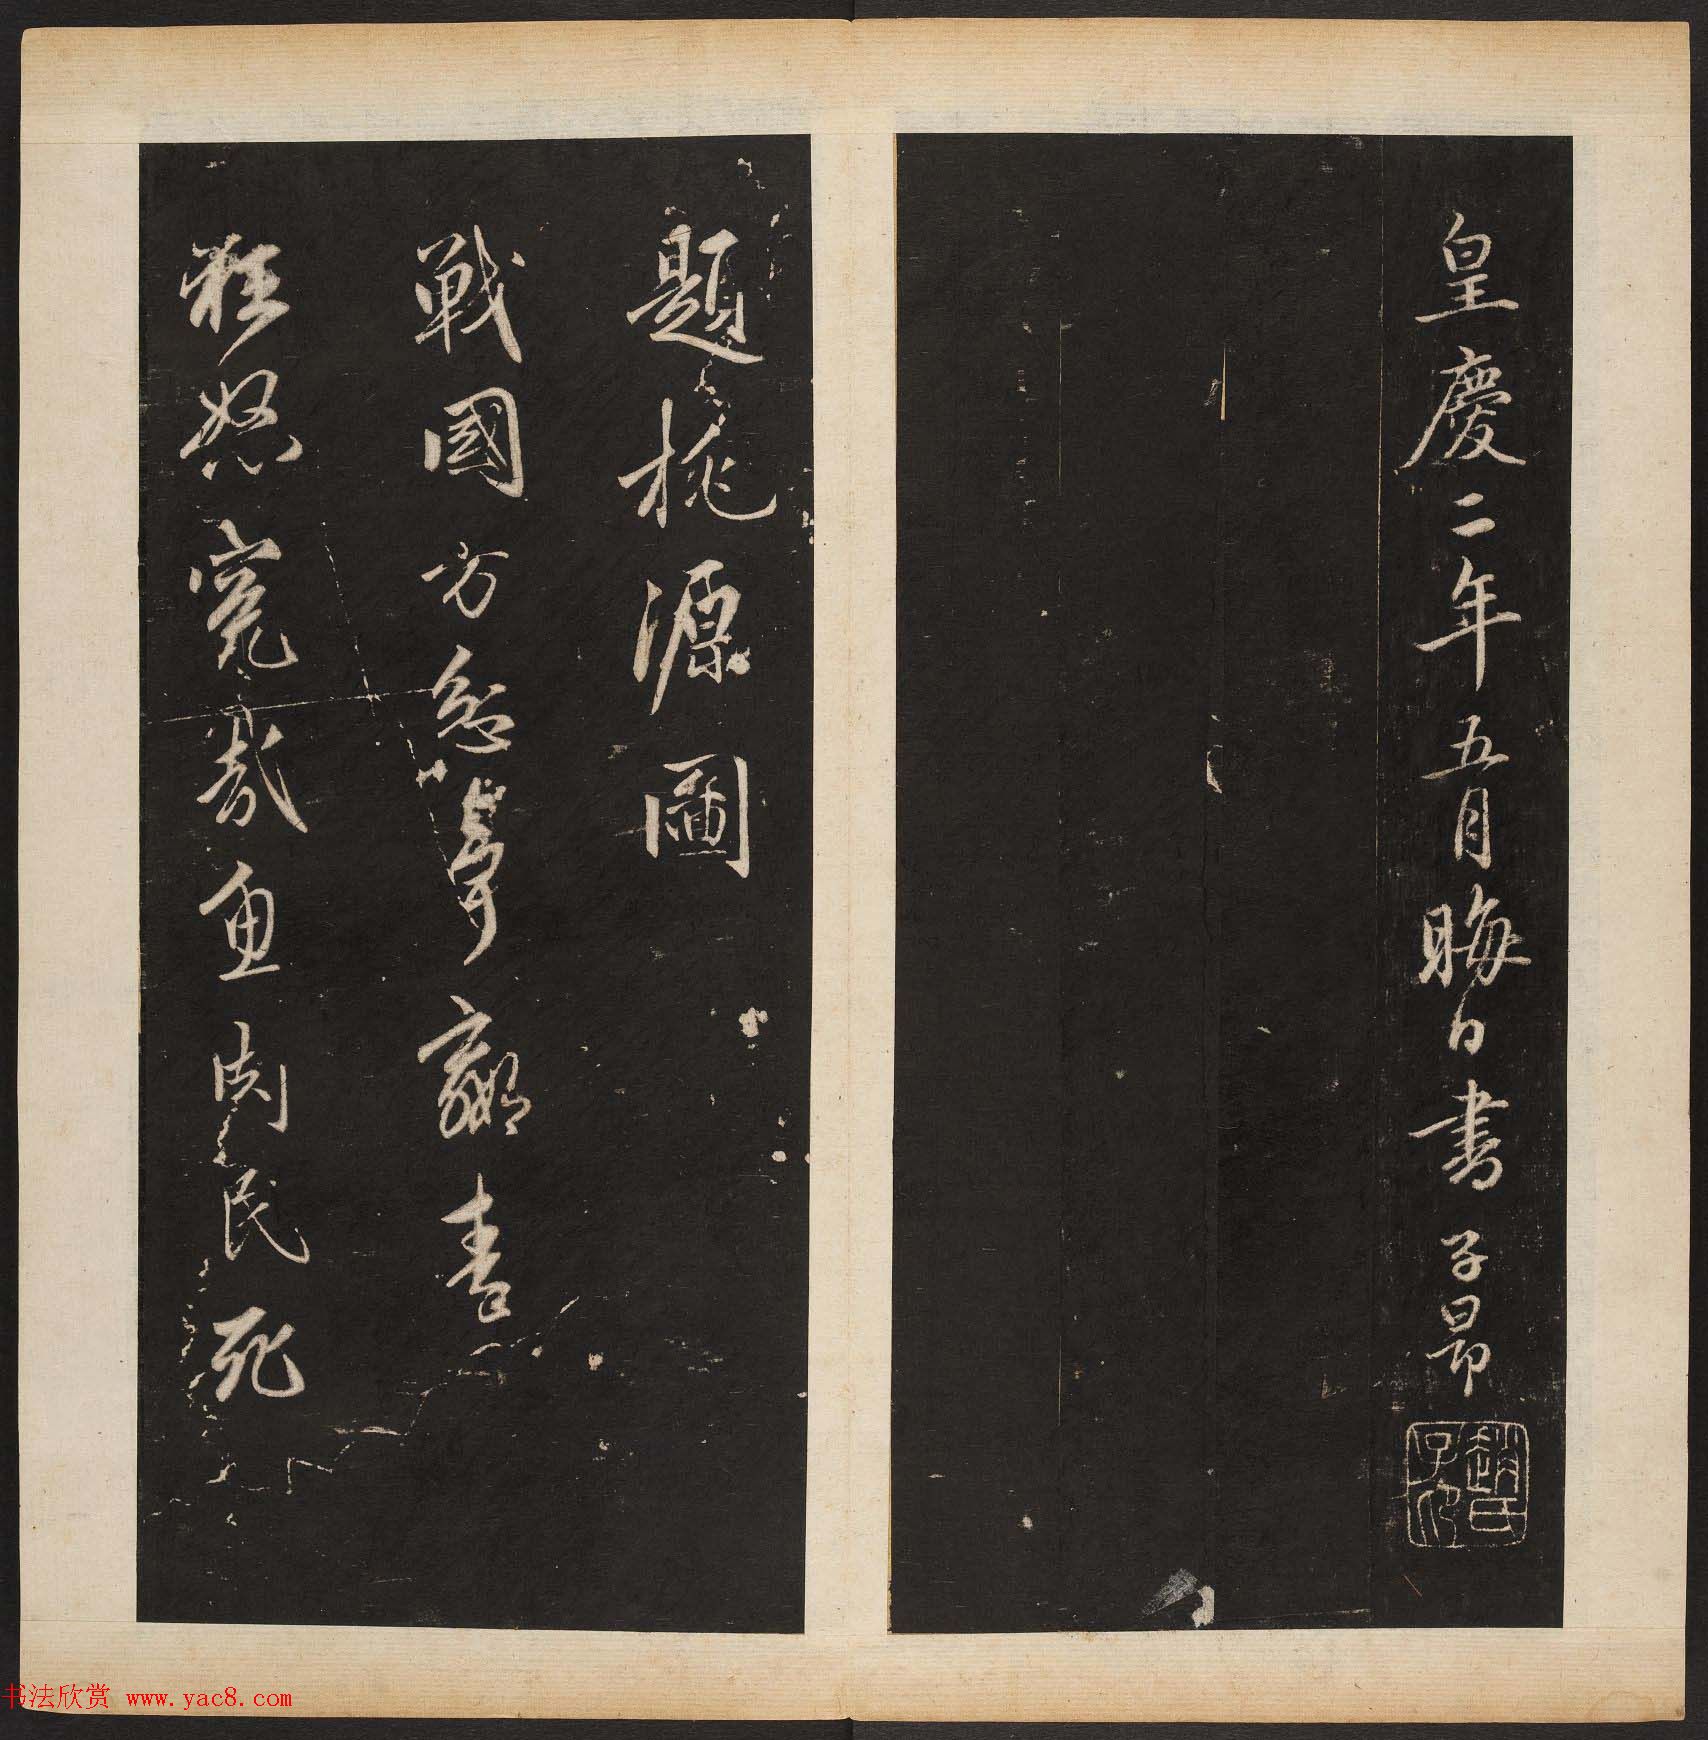 皇慶二年五月晦日書子昂
趙氏子昂
題桃源圖
戰國方忿爭嬴秦
狂怒冤哉魚肉民死
书法欣赏 www.yac8.com